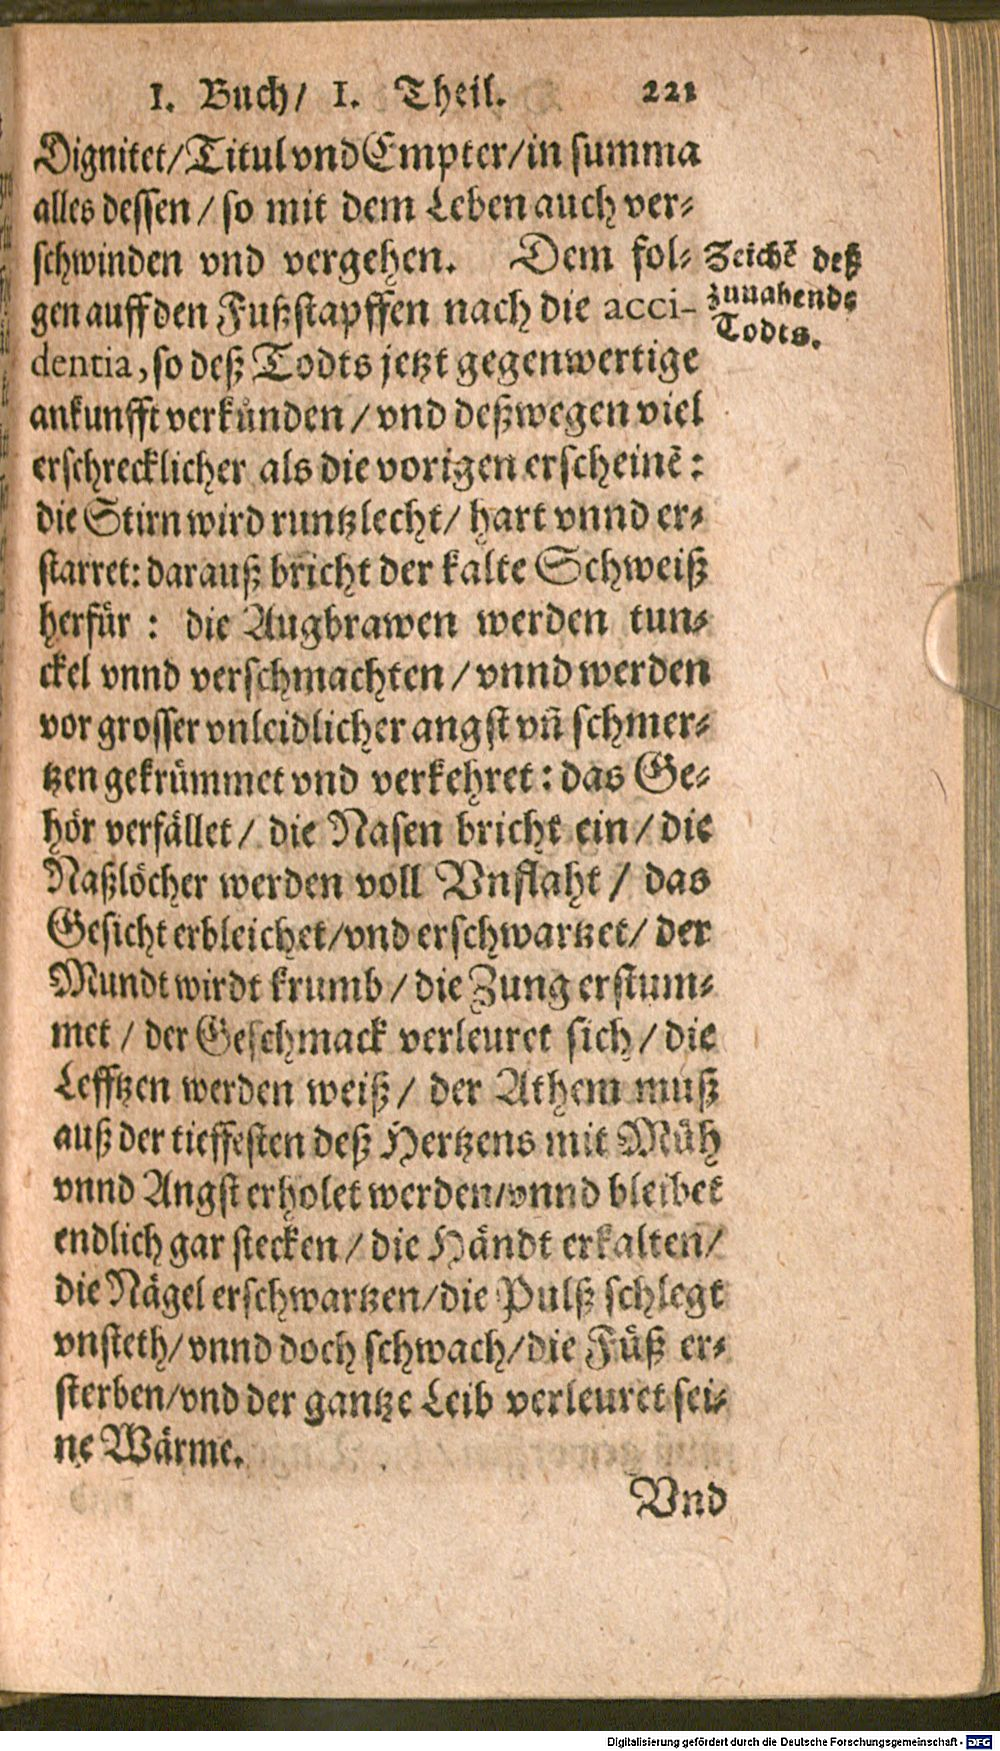 I. Buch/ I. Theil. 221
Dignitet/Titul vnd Empter/in summa
alles dessen/ so mit dem Leben auch ver-
schwinden vnd vergehen. Dem fol-
gen auff den Fußstapffen nach die acci-
dentia, so deß Todts jetzt gegenwertige
ankunfft verkünden/ vnd deßwegen viel
erschrecklicher als die vorigen erscheinē:
die Stirn wird runtzlecht/ hart vnnd er-
starret: darauß bricht der kalte Schweiß
herfür: die Augbrawen werden tun-
ckel vnnd verschmachten/ vnnd werden
vor grosser vnleidlicher angst vñ schmer-
tzen gekrümmet vnd verkehret: das Ge-
hör verfället/ die Nasen bricht ein/ die
Naßlöcher werden voll Vnflaht/ das
Gesicht erbleichet/vnd erschwartzet/ der
Mundt wirdt krumb/ die Zung erstum-
met/ der Geschmack verleuret sich/ die
Lefftzen werden weiß/ der Athem muß
auß der tieffesten deß Hertzens mit Müh
vnnd Angst erholet werden/vnnd bleibet
endlich gar stecken/ die Händt erkalten/
die Nägel erschwartzen/die Pulß schlegt
vnsteth/ vnnd doch schwach/die Füß er-
sterben/vnd der gantze Leib verleuret sei-
ne Wärme.
Vnd
Zeichē deß
zunahends
Todts.
Digitalisierung gefördert durch die Deutsche Forschungsgemeinschaft - DFG